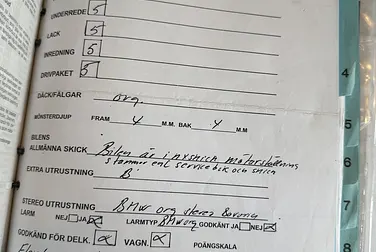 UNDERREDE 5
LACK 5
INREDNING 5
DRIVPAKET 5
DÄCK/FÄLGAR org.
MÖNSTERDJUP FRAM 4 M.M. BAK 4 M.M
BILENS
ALLMÄNNA SKICK Bilen är i nyskick motorställning
stämmer enl service bok och skick
EXTRA UTRUSTNING
STEREO UTRUSTNING BMW org stereo
LARM NEJ JA LARMTYP BMW org GODKÄNT JA NEJ
GODKÄND FÖR DELK. VAGN. POÄNGSKALA
4
5
6
7
8